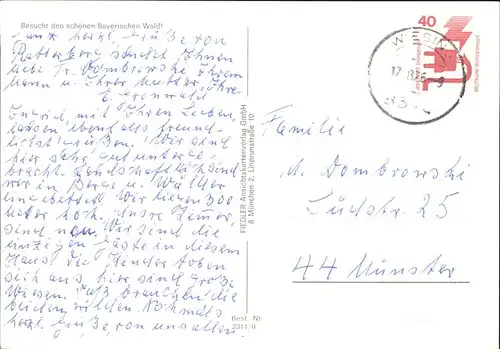 Besucht den schönen Bayerischen Wald!
Ganz herzl. Grüße von
sendet Ihnen
liebe Fr. Dombrowski Ihrem
Mann u. Ihrer Mutter Ihre
E.
Ingrid, mit Ihren Lieben,
lassen ebenfalls freund-
lichst grüßen. Wir sind
hier sehr gut unterge-
bracht. Landschaftlich sind
wir in Berge u. Wälder
eingebettet. Wir liegen 300
Meter hoch. Unsre Zimmer
sind neu. Wir sind die
einzigen Gäste in diesem
Haus. Die Kinder toben
sich aus hier sind große
Wiesen. Platz brauchen die
beiden wilden. Nochmals
herzl. Grüße, von uns allen
FIEDLER Ansichtskartenverlag GmbH
8 München 2, Linprunstraße 10
Best. Nr.
2311/6
40
DEUTSCHE BUNDESPOST
17.8.76-9
Familie
M. Dombrowski
Südstr. 25
44 Münster